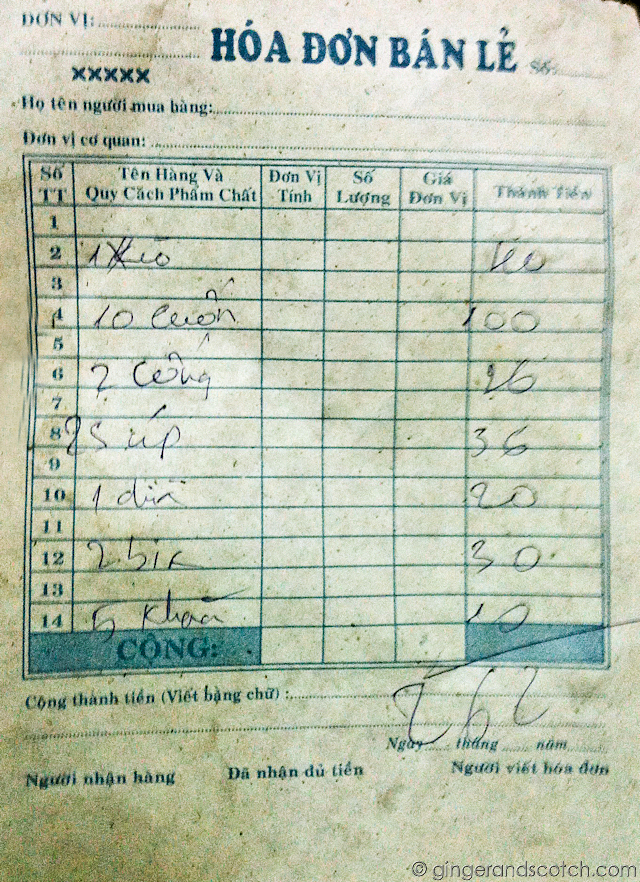 ĐƠN VỊ:
HÓA ĐƠN BÁN LẺ Số:
xxxxx
Họ tên người mua hàng:
Đơn vị cơ quan:
Số TT Tên Hàng Và Quy Cách Phẩm Chất Đơn Vị Tính Số Lượng Giá Đơn Vị Thành Tiền
1
2 1 Xèo 40
3
4 10 cuốn 100
5
6 2 26
7
8 2 Súp 36
9
10 1 20
11
12 2 bia 30
13
14 5 khăn 10
CỘNG:
Cộng thành tiền (Viết bằng chữ) :
262
Ngày tháng năm
Người nhận hàng Đã nhận đủ tiền Người viết hóa đơn
© gingerandscotch.com